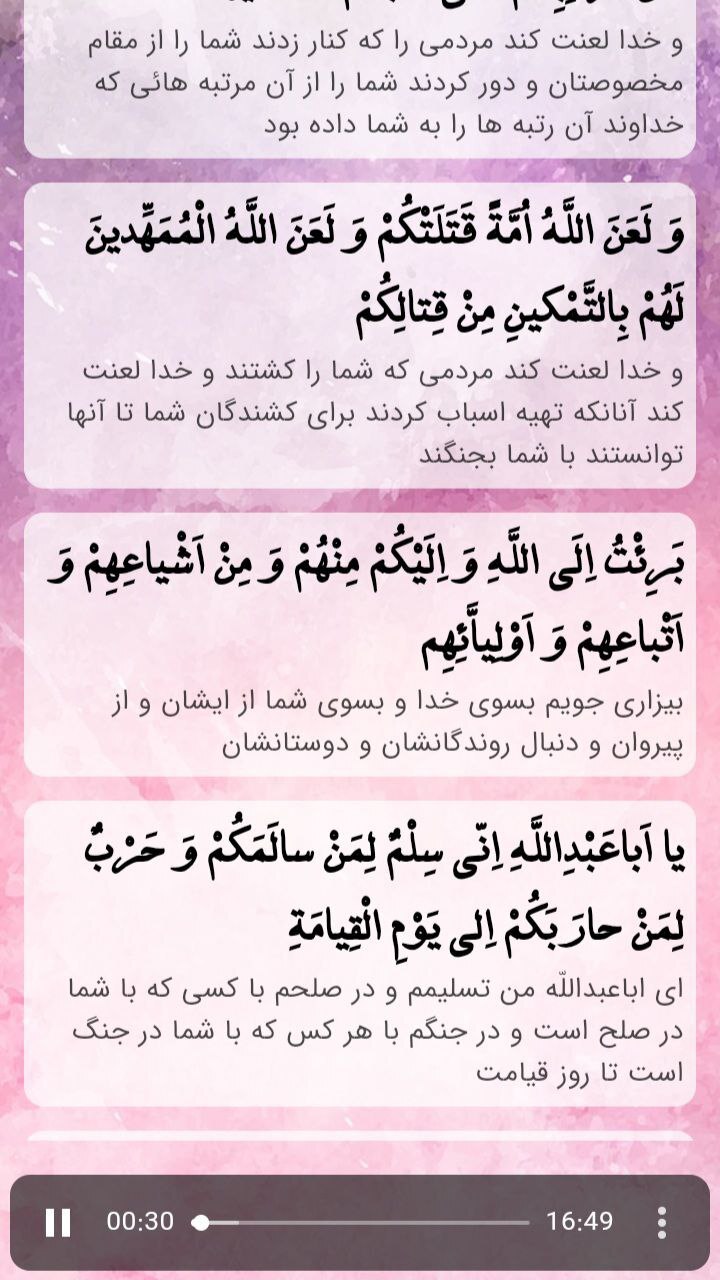 و خدا لعنت کند مردمی را که کنار زدند شما را از مقام
مخصوصتان و دور کردند شما را از آن مرتبه هائی که
خداوند آن رتبه ها را به شما داده بود
وَ لَعَنَ اللَّهُ اُمَّةً قَتَلَتْكُمْ وَ لَعَنَ اللَّهُ الْمُمَهِّدينَ
لَهُمْ بِالتَّمْكينِ مِنْ قِتالِكُمْ
و خدا لعنت کند مردمی که شما را کشتند و خدا لعنت
کند آنانکه تهیه اسباب کردند برای کشندگان شما تا آنها
توانستند با شما بجنگند
بَرِئْتُ اِلَى اللَّهِ وَ اِلَيْكُمْ مِنْهُمْ وَ مِنْ اَشْياعِهِمْ وَ
اَتْباعِهِمْ وَ اَوْلِياَّئِهِم
بیزاری جویم بسوی خدا و بسوی شما از ایشان و از
پیروان و دنبال روندگانشان و دوستانشان
يا اَباعَبْدِاللَّهِ اِنّى سِلْمٌ لِمَنْ سالَمَكُمْ وَ حَرْبٌ
لِمَنْ حارَبَكُمْ اِلى يَوْمِ الْقِيامَةِ
ای اباعبداللّه من تسلیمم و در صلحم با کسی که با شما
در صلح است و در جنگم با هر کس که با شما در جنگ
است تا روز قیامت
00:30 16:49